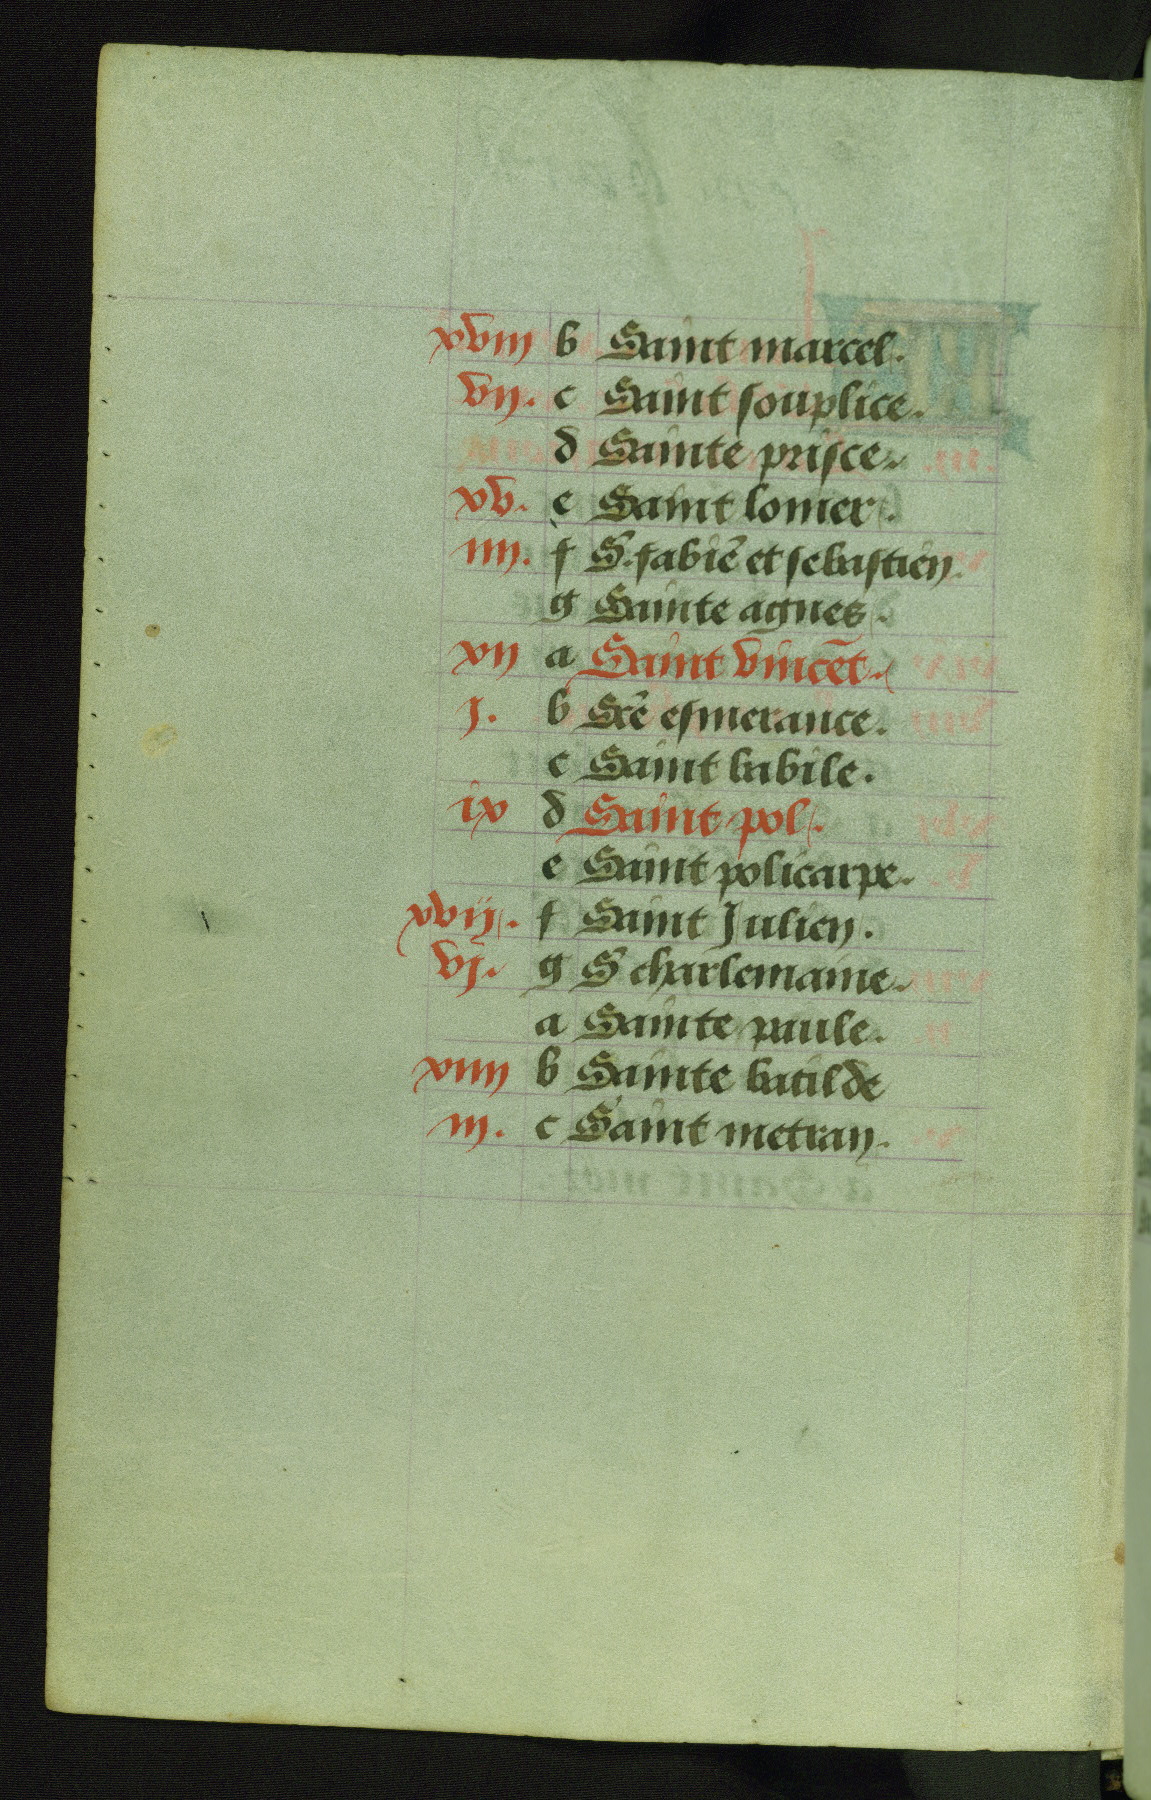 xviii b Saint marcel.
vii. c Saint souplice.
d Sainte prisce.
xv. e Saint lomer.
iiii. f S. fabiē et sebastien.
g Sainte agnes.
xii a Saint vincēt.
j. b Scē esmerance.
c Saint babile.
ix d Saint pol.
e Saint policarpe.
xvij. f Saint Julien.
vj. g S charlemaine.
a Sainte paule.
xiiii b Sainte batilde
iij. c Saint metran.